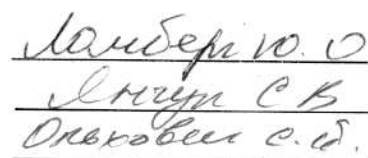 Ломбер Ю. О
Янчук С В
Ольховик С. А.